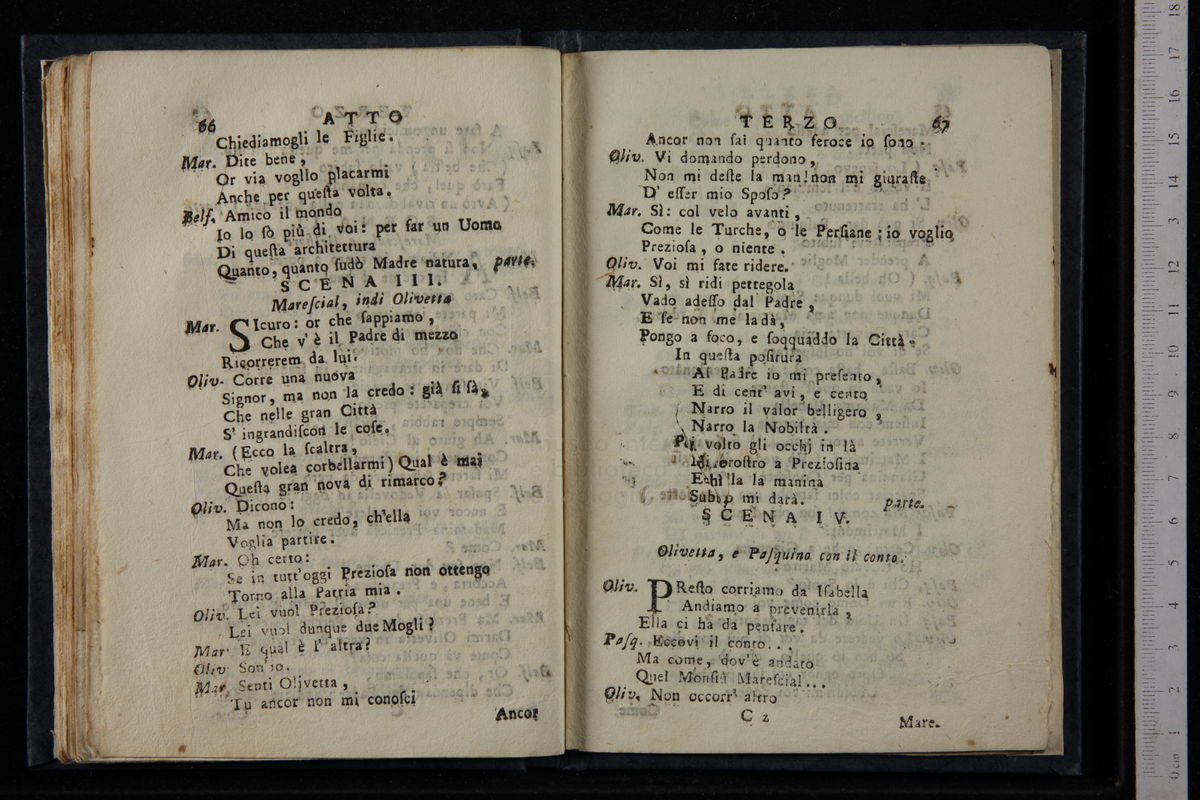 66 ATTO
Chiediamogli le Figlie.
Mar. Dite bene,
Or via vogllo placarmi
Anche per queſta volta.
Belf. Amico il mondo
Io lo ſò più di voi: per far un Uomo
Di queſta architettura
Quanto, quanto ſudò Madre natura, parte.
SCENA III.
Mareſcial, indi Olivetta
Mar. SIcuro: or che ſappiamo,
Che v'è il Padre di mezzo
Ricorrerem da lui.
Oliv. Corre una nuova
Signor, ma non la credo: già ſi ſà,
Che nelle gran Città
S' ingrandiſcon le coſe.
Mar. (Ecco la ſcaltra,
Che volea corbellarmi) Qual è mai
Queſta gran nova di rimarco?
Oliv. Dicono:
Ma non lo credo, ch'ella
Voglia partire.
Mar. Oh certo:
Se in tutt'oggi Prezioſa non ottengo
Torno alla Patria mia.
Oliv. Lei vuol Prezioſa?
Lei vuol dunque due Mogli?
Mar. E qual è l' altra?
Oliv. Son'io.
Mar. Senti Olivetta,
Tu ancor non mi conoſci
Ancor
TERZO 67
Ancor non ſai quanto feroce io ſono.
Oliv. Vi domando perdono,
Non mi deſte la man! non mi giuraſte
D' eſſer mio Spoſo?
Mar. Sì: col velo avanti,
Come le Turche, o le Perſiane; io voglio
Prezioſa, o niente.
Oliv. Voi mi fate ridere.
Mar. Sì, sì ridi pettegola
Vado adeſſo dal Padre,
E ſe non me la dà,
Pongo a foco, e ſoqquaddo la Città.
In queſta poſitura
Al Padre io mi preſento,
E di cent' avi, e cento
Narro il valor belligero,
Narro la Nobiltà.
volto gli occhj in là
a Prezioſina
la manina
mi darà. parte.
SCENA IV.
Olivetta, e Paſquino con il conto.
Oliv. PReſto corriamo da Iſabella
Andiamo a prevenirla,
Ella ci ha da penſare.
Paſq. Eccovi il conto...
Ma come, dov'è andato
Quel Monſiù Mareſcial...
Oliv. Non occorr' altro
C 2
Mare-